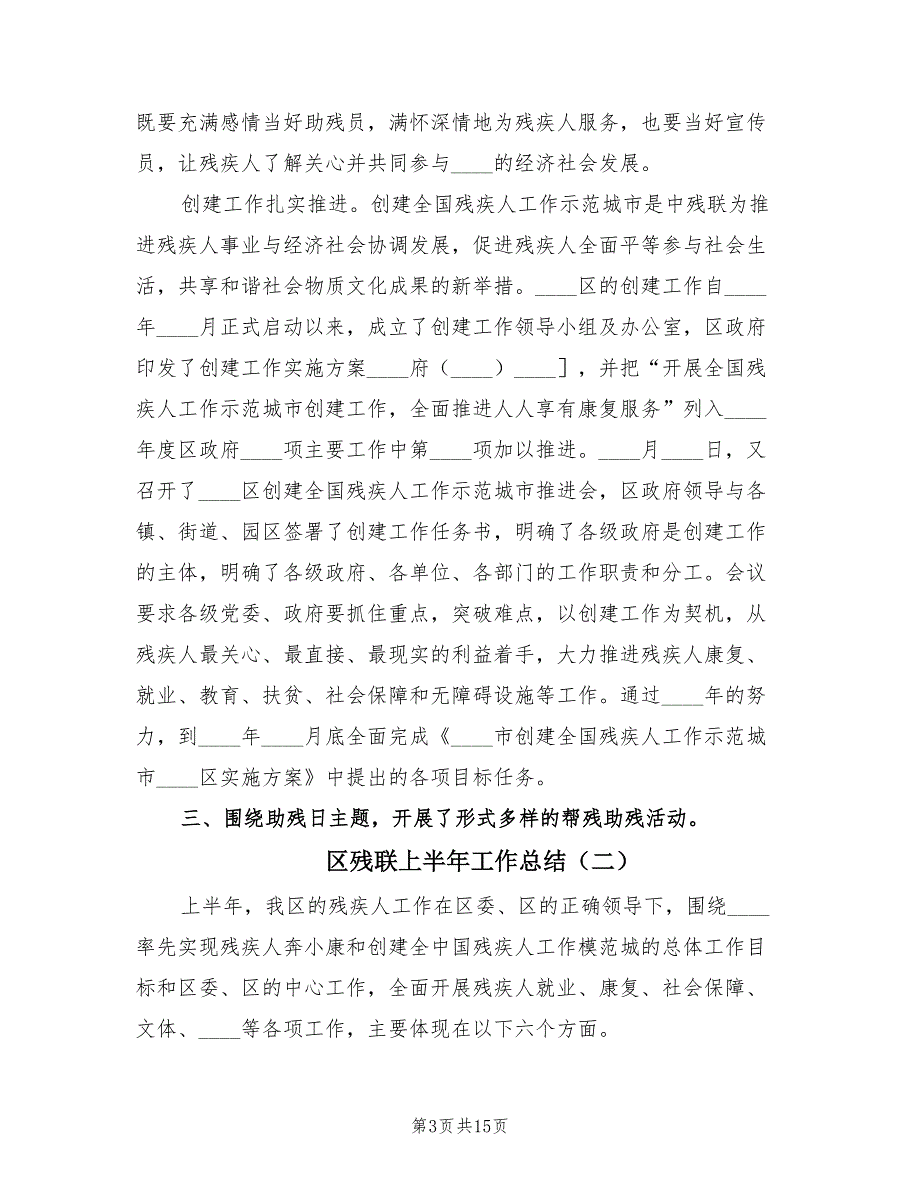 既要充满感情当好助残员，满怀深情地为残疾人服务，也要当好宣传
员，让残疾人了解关心并共同参与____的经济社会发展。
创建工作扎实推进。创建全国残疾人工作示范城市是中残联为推
进残疾人事业与经济社会协调发展，促进残疾人全面平等参与社会生
活，共享和谐社会物质文化成果的新举措。____区的创建工作自____
年____月正式启动以来，成立了创建工作领导小组及办公室，区政府
印发了创建工作实施方案____府（____）____］，并把“开展全国残
疾人工作示范城市创建工作，全面推进人人享有康复服务”列入____
年度区政府____项主要工作中第____项加以推进。____月____日，又
召开了____区创建全国残疾人工作示范城市推进会，区政府领导与各
镇、街道、园区签署了创建工作任务书，明确了各级政府是创建工作
的主体，明确了各级政府、各单位、各部门的工作职责和分工。会议
要求各级党委、政府要抓住重点，突破难点，以创建工作为契机，从
残疾人最关心、最直接、最现实的利益着手，大力推进残疾人康复、
就业、教育、扶贫、社会保障和无障碍设施等工作。通过____年的努
力，到____年____月底全面完成《____市创建全国残疾人工作示范城
市____区实施方案》中提出的各项目标任务。
三、围绕助残日主题，开展了形式多样的帮残助残活动。
区残联上半年工作总结（二）
上半年，我区的残疾人工作在区委、区的正确领导下，围绕____
率先实现残疾人奔小康和创建全中国残疾人工作模范城的总体工作目
标和区委、区的中心工作，全面开展残疾人就业、康复、社会保障、
文体、____等各项工作，主要体现在以下六个方面。
第3页共15页